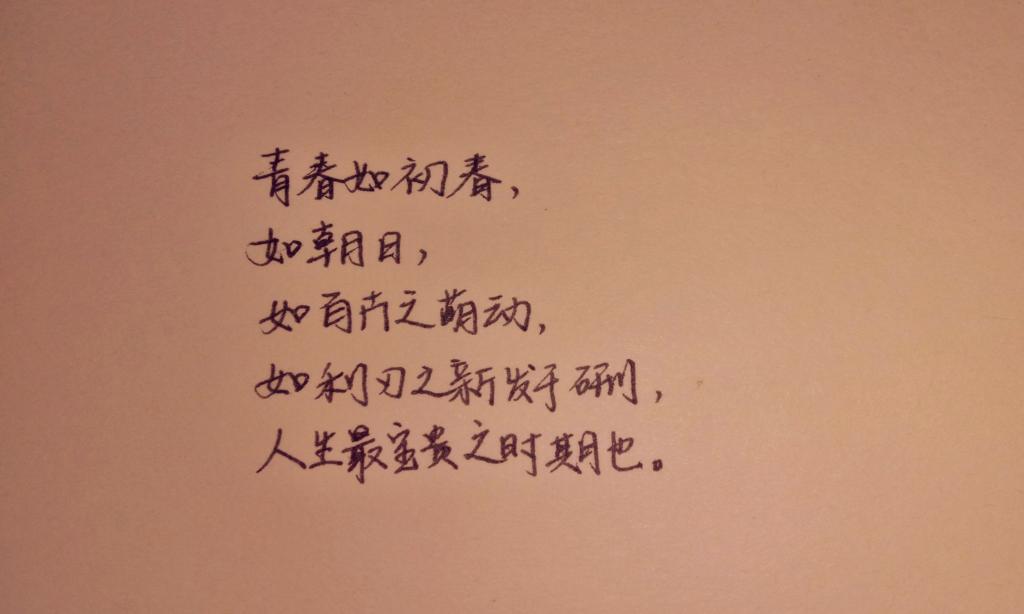 青春如初春，
如朝日，
如百卉之萌动，
如利刃之新发于硎，
人生最宝贵之时期也。